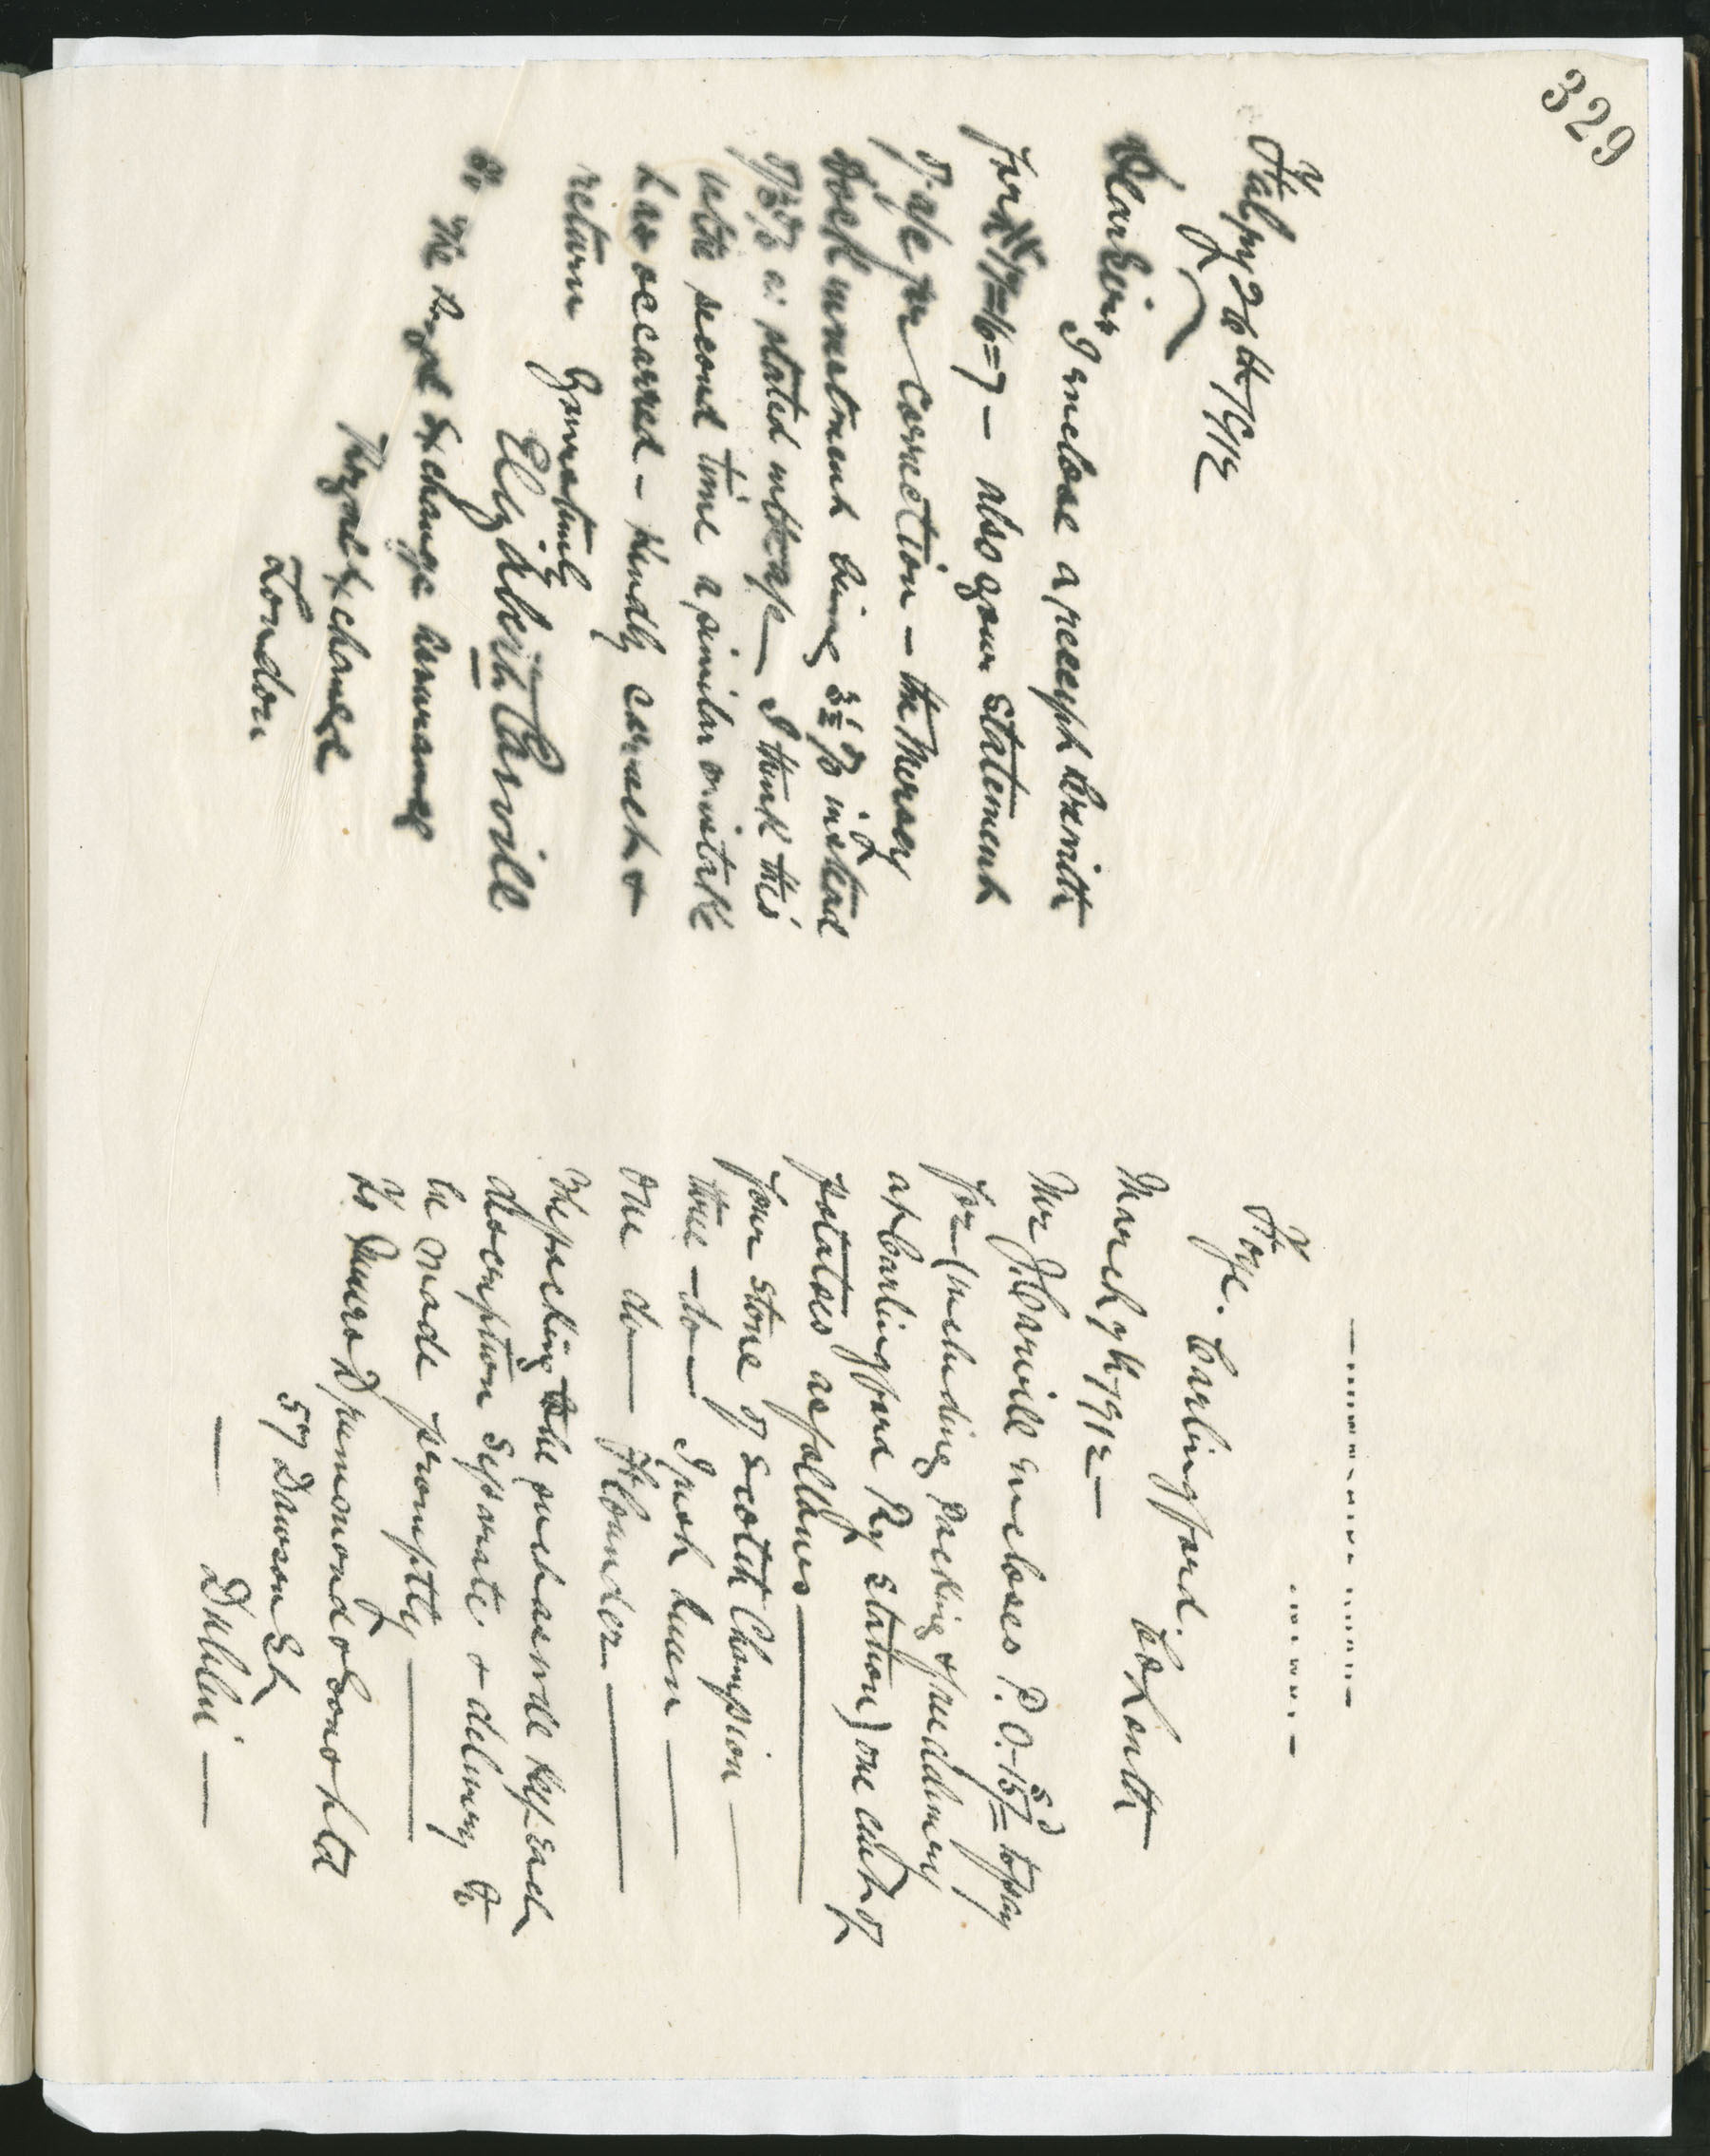 329
Feby 26th 1912
Dear Sirs
I enclose a receipt herewith
for 7=16=7 - also your Statement
of a/c for correction - the Mersey
Dock investment being 3½ % instead
of 3% as stated in the a/c - I think this
is the second time a similar mistake
has occurred - Kindly correct &
return Yours truly
Elizabeth Carvill
To The Royal Exchange Assurance
Royal Exchange
London
Faye. Carlingford.
Co Louth
March 7th 1912 -
Mr J. Carvill encloses P.O. 15s/= to pay
for (including Packing & free delivery
at Carlingford Ry Station) one cwt of
potatoes as follows
four stone of Scotch Champion
three - do - Irish Queen
one do - Flounder
The packing to be in such as will keep each
description Separate & delivery to
be made promptly
To Messrs Drummond & Sons Ltd
57 Dawson St
Dublin